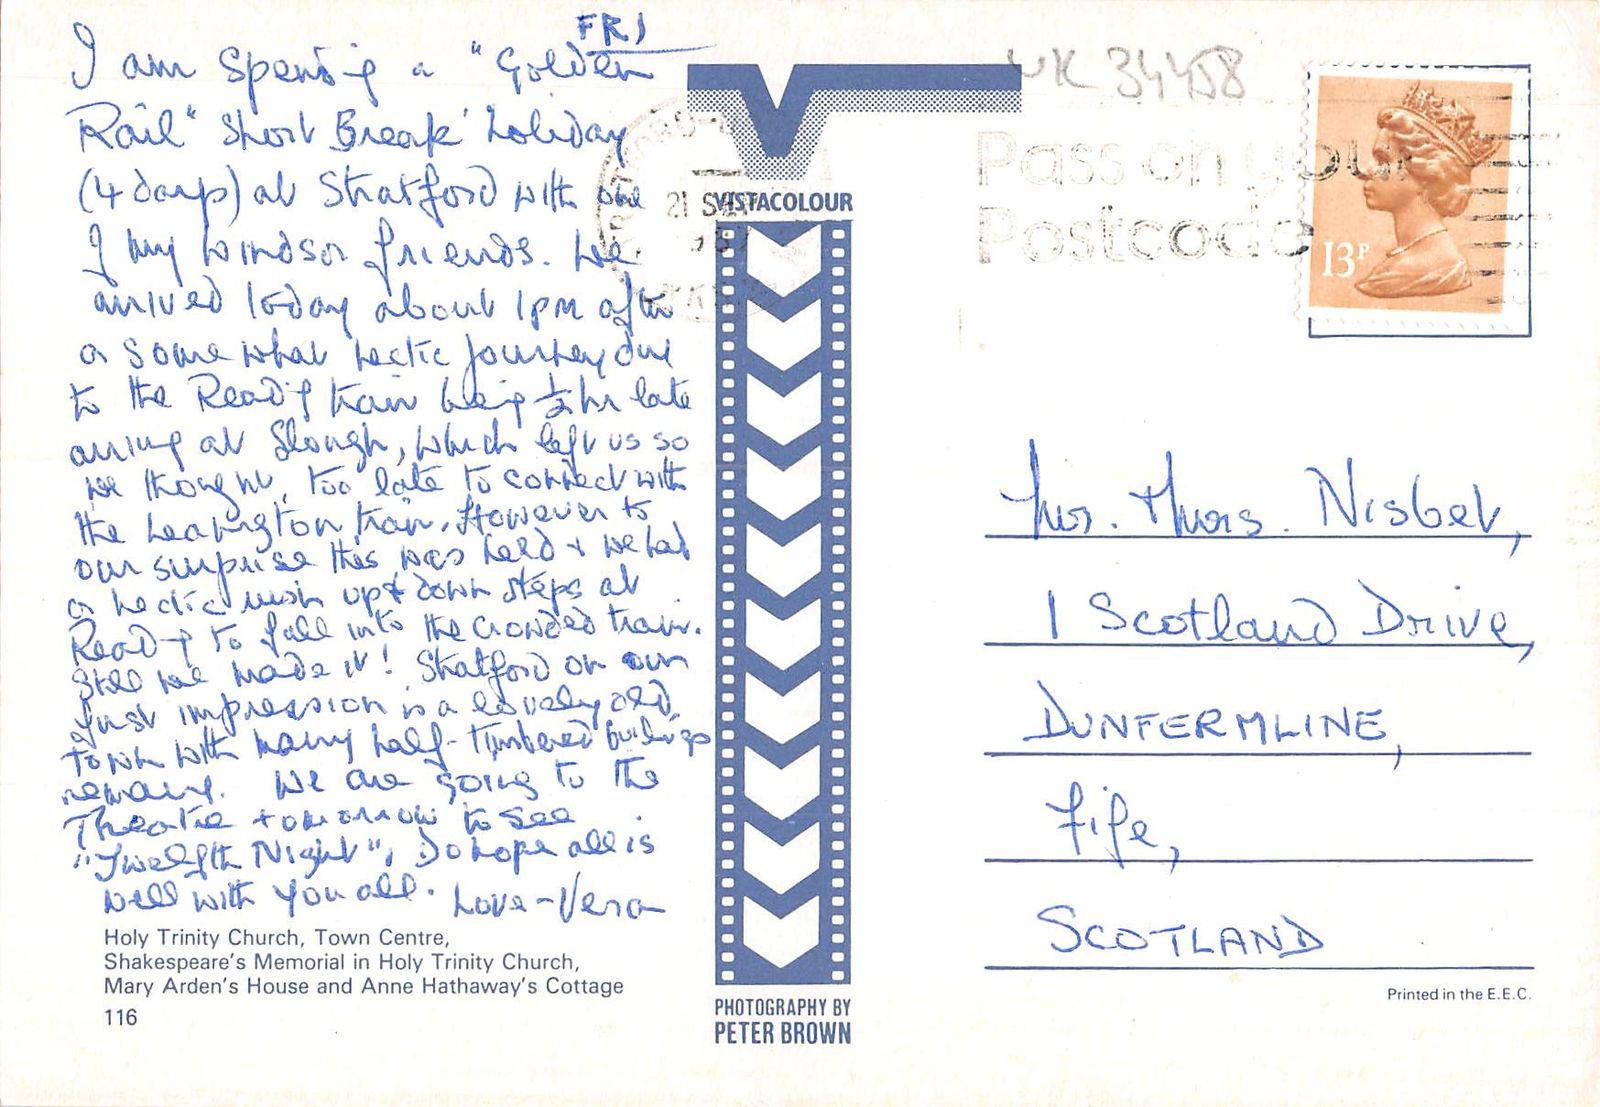 FRI
I am spending a "Golden
Rail" Short Break' holiday
(4 days) at Stratford with one
of my Windsor friends. We
arrived today about 1pm after
a somewhat hectic journey due
to the Reading train being ½hr late
arriving at Slough, which left us so
we thought, too late to connect with
the Leamington train. However to
our surprise this was held & we had
a hectic rush up & down steps at
Reading to fall into the crowded train.
Still we made it! Stratford on our
first impression is a lovely old
town with many half-timbered buildings
remaining. We are going to the
Theatre tomorrow to see
"Twelfth Night", Do hope all is
well with you all. Love - Vera
Holy Trinity Church, Town Centre,
Shakespeare's Memorial in Holy Trinity Church,
Mary Arden's House and Anne Hathaway's Cottage
116
VISTACOLOUR
PHOTOGRAPHY BY
PETER BROWN
21 SEP
34458
Pass on your
Postcode
13P
Nisbet,
1 Scotland Drive,
DUNFERMLINE,
Fife,
SCOTLAND
Printed in the E.E.C.